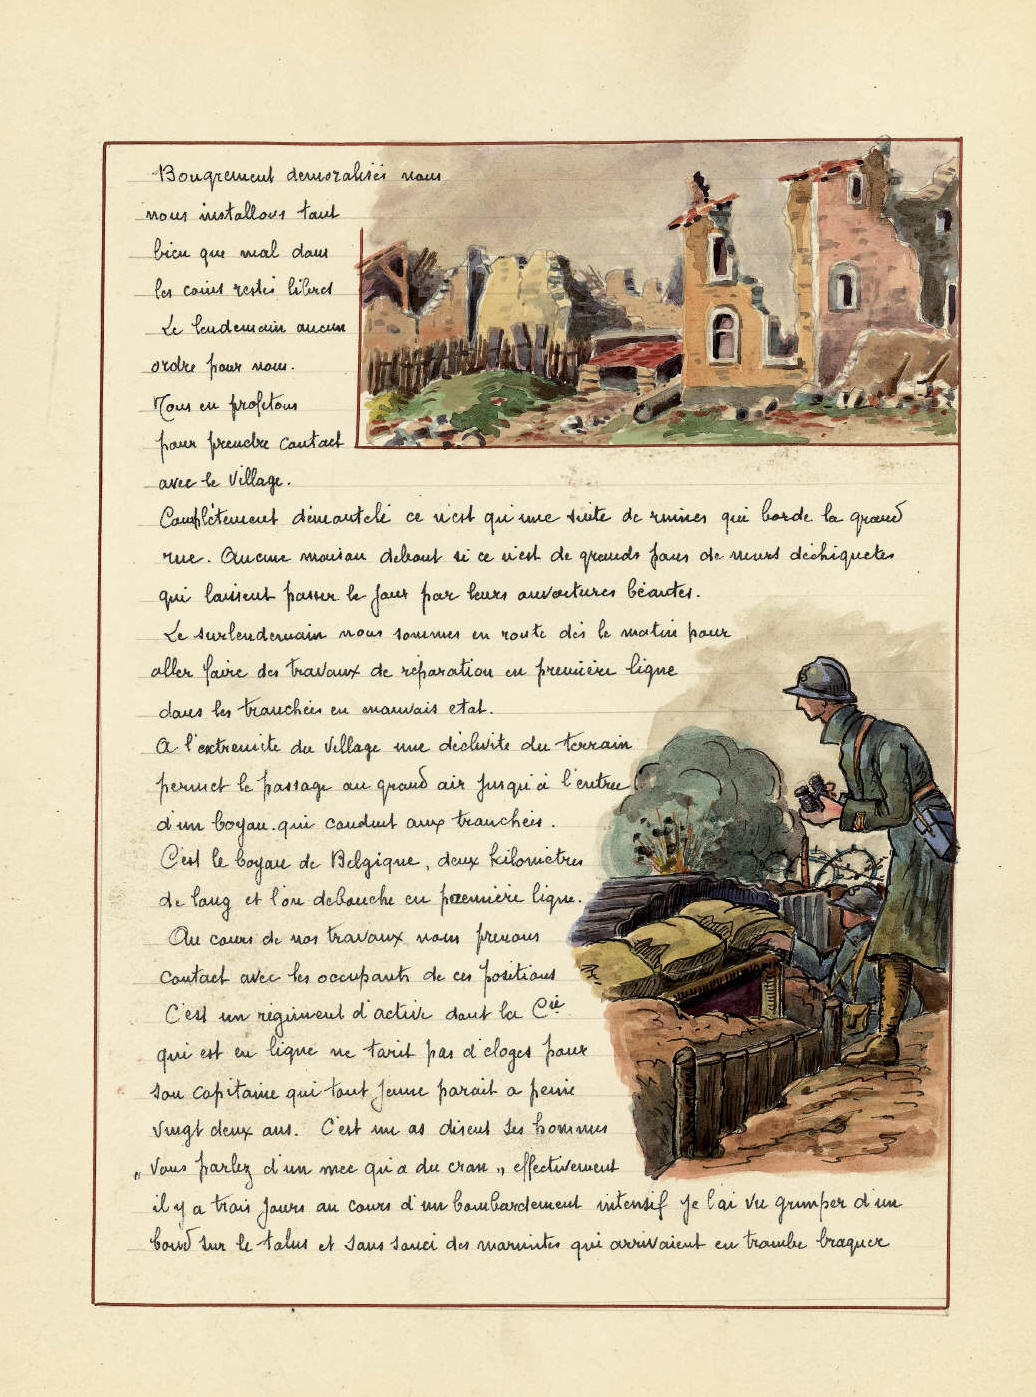 Bougrement demoralisés nous
nous installons tant
bien que mal dans
les coins restés libres
Le lendemain aucun
ordre pour nous.
Nous en profitons
pour prendre contact
avec le Village.
Complètement démantelé ce n'est qu'une suite de ruines qui borde la grand
rue. Aucune maison debout si ce n'est de grands pans de murs déchiquetés
qui laissent passer le jour par leurs ouvertures béantes.
Le surlendemain nous sommes en route dès le matin pour
aller faire des travaux de réparation en première ligne
dans les tranchées en mauvais etat.
A l'extremite du Village une déclivité du terrain
permet le passage au grand air jusqu'à l'entrée
d'un boyau qui conduit aux tranchées.
C'est le boyau de Belgique, deux kilomètres
de long et l'on debouche en première ligne.
Au cours de nos travaux nous prenons
contact avec les occupants de ces positions
C'est un régiment d'active dont la Cie
qui est en ligne ne tarit pas d'eloges pour
son capitaine qui tout jeune parait a peine
vingt deux ans. C'est un as disent ses hommes
„ Vous parlez d'un mec qu'a du cran „ effectivement
il y a trois jours au cours d'un bombardement intensif je l'ai vu grimper d'un
bond sur le talus et sans souci des marmites qui arrivaient en trombe braquer